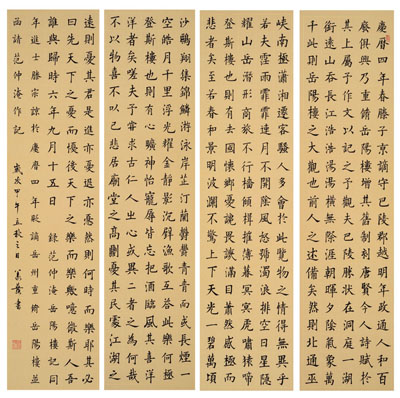 慶曆四年春滕子京謫守巴陵郡越明年政通人和百
廢俱興乃重脩岳陽樓增其舊制刻唐賢今人詩賦於
其上屬予作文以記之予觀夫巴陵勝狀在洞庭一湖
銜遠山吞長江浩浩湯湯橫無際涯朝暉夕陰氣象萬
千此則岳陽樓之大觀也前人之述備矣然則北通巫
峽南極瀟湘遷客騷人多會於此覽物之情得無異乎
若夫霪雨霏霏連月不開陰風怒號濁浪排空日星隱
耀山岳潛形商旅不行檣傾楫摧薄暮冥冥虎嘯猿啼
登斯樓也則有去國懷鄉憂讒畏譏滿目蕭然感極而
悲者矣至若春和景明波瀾不驚上下天光一碧萬頃
沙鷗翔集錦鱗游泳岸芷汀蘭鬱鬱青青而或長煙一
空皓月千里浮光耀金靜影沉璧漁歌互答此樂何極
登斯樓也則有心曠神怡寵辱皆忘把酒臨風其喜洋
洋者矣嗟夫予嘗求古仁人之心或異二者之為何哉
不以物喜不以己悲居廟堂之高則憂其民處江湖之
遠則憂其君是進亦憂退亦憂然則何時而樂耶其必
曰先天下之憂而憂後天下之樂而樂歟噫微斯人吾
誰與歸時六年九月十五日 錄范仲淹岳陽樓記同
年進士滕宗諒於慶曆四年謫岳州重脩岳陽樓並
函請范仲淹作記 歲次甲午立秋之日 書